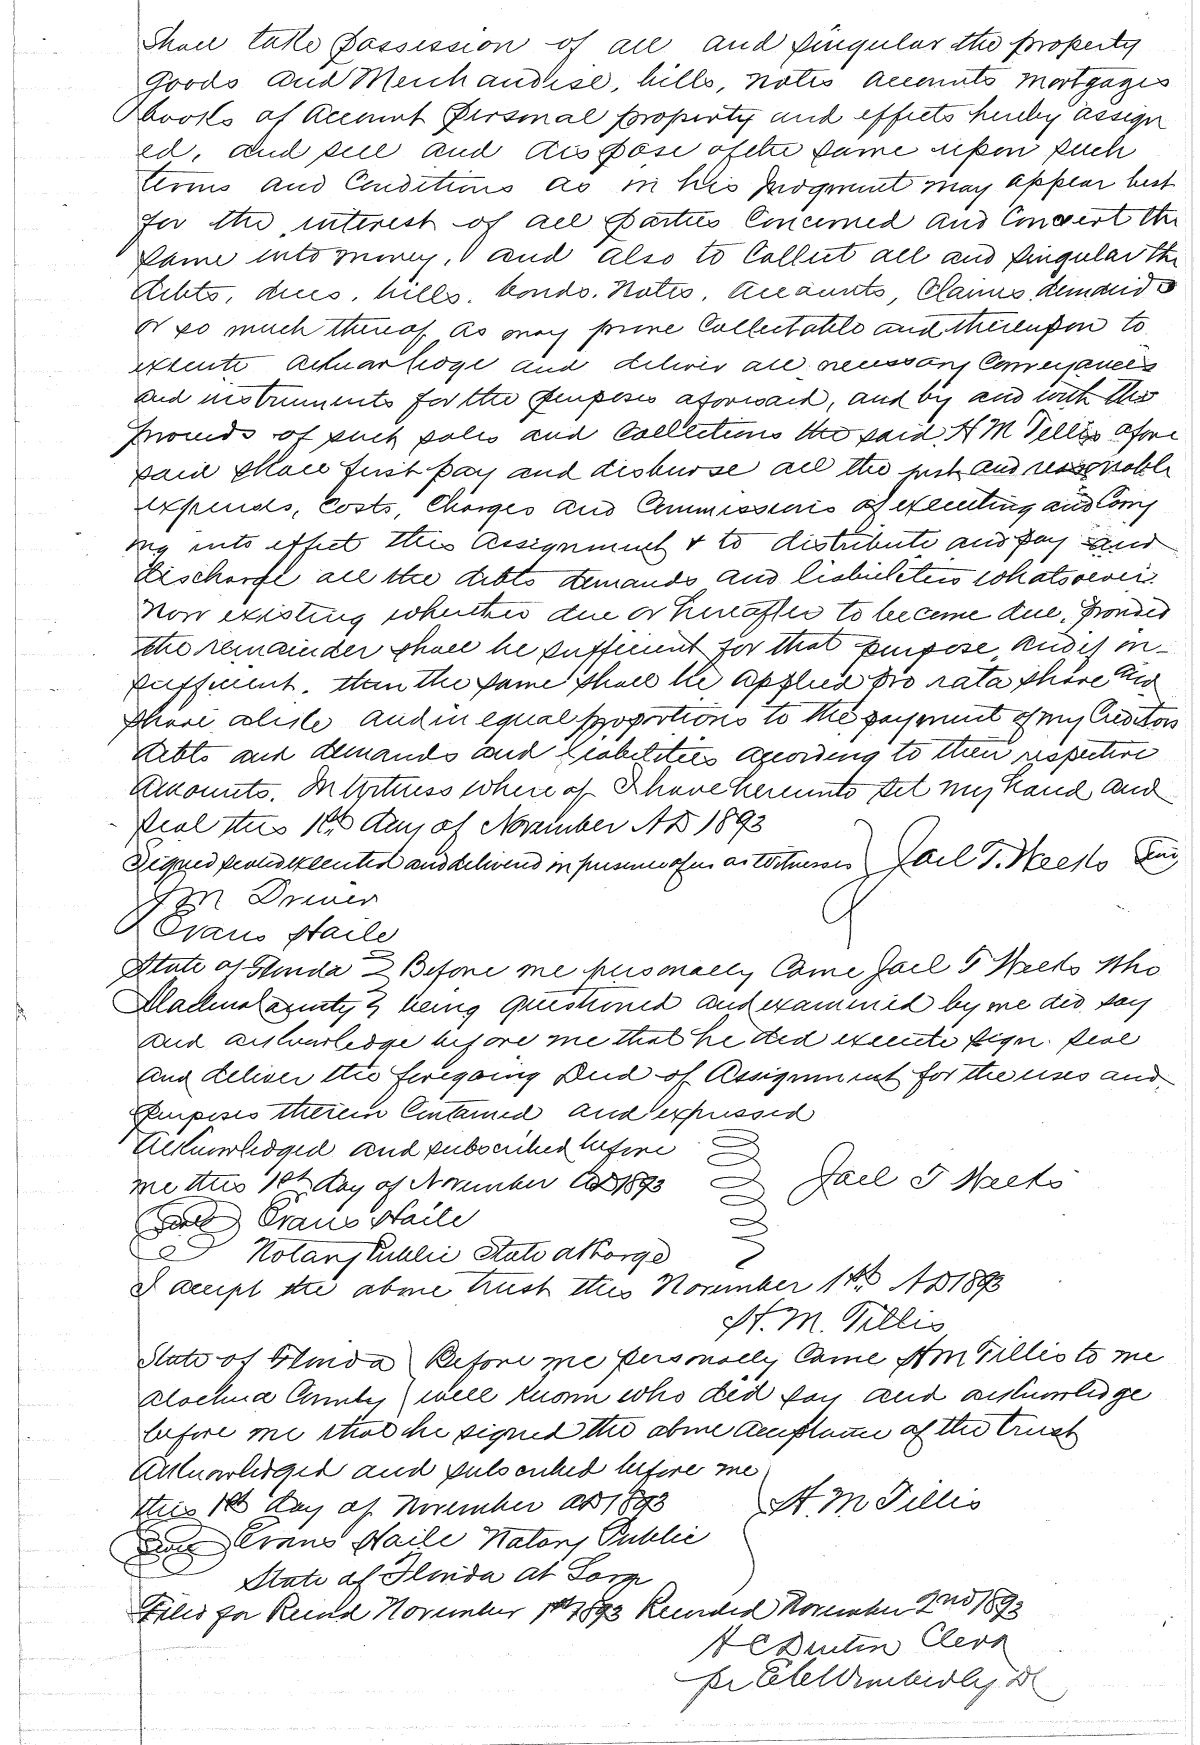 Shall take possession of all and singular the property
Goods and Merchandise, bills, notes accounts mortgages
books of Account personal property and effects hereby assign
ed, and sell and dispose of the same upon such
terms and Conditions as in his judgment may appear best
for the interest of all parties Concerned and Convert the
same into money, and also to Collect all and singular the
debts, dues, bills, bonds, notes, accounts, Claims demands
or so much thereof as may prove Collectable and thereupon to
execute acknowledge and deliver all necessary Conveyances
and instruments for the purposes aforesaid, and by and with the
proceeds of such sales and Collections the said H M Tillis afore
said shall first pay and disburse all the just and reasonable
expenses, Costs, Charges and Commissions of executing and Carry
ing into effect this assignment & to distribute and pay and
discharge all the debts demands and liabilities whatsoever
now existing whether due or hereafter to become due, provided
the remainder shall be sufficient for that purpose, and if in-
sufficient, then the same shall be applied pro rata share and
share alike and in equal proportions to the payment of my Creditors
debts and demands and liabilities according to their respective
Amounts. In Witness whereof I have hereunto set my hand and
seal this 1st day of November AD 1893
Signed sealed executed and delivered in presence of us as Witnesses Jael T. Weeks Seal
J M Driver
Evans Haile
State of Florida Before me personally Came Jael T Weeks who
Alachua County being questioned and examined by me did say
and acknowledge before me that he did execute sign seal
and deliver the foregoing Deed of Assignment for the uses and
purposes therein Contained and expressed
Acknowledged and subscribed before
me this 1st day of November AD 1893 Jael T Weeks
Seal Evans Haile
Notary Public State at Large
I accept the above trust this November 1st AD 1893
H. M. Tillis
State of Florida Before me personally Came H M Tillis to me
Alachua County well known who did say and acknowledge
before me that he signed the above acceptance of the trust
Acknowledged and subscribed before me
this 1st day of November AD 1893 H. M Tillis
Seal Evans Haile Notary Public
State of Florida at Large
Filed for Record November 1st 1893 Recorded November 2nd 1893
H C Denton Clerk
pr E C Wimberly DC